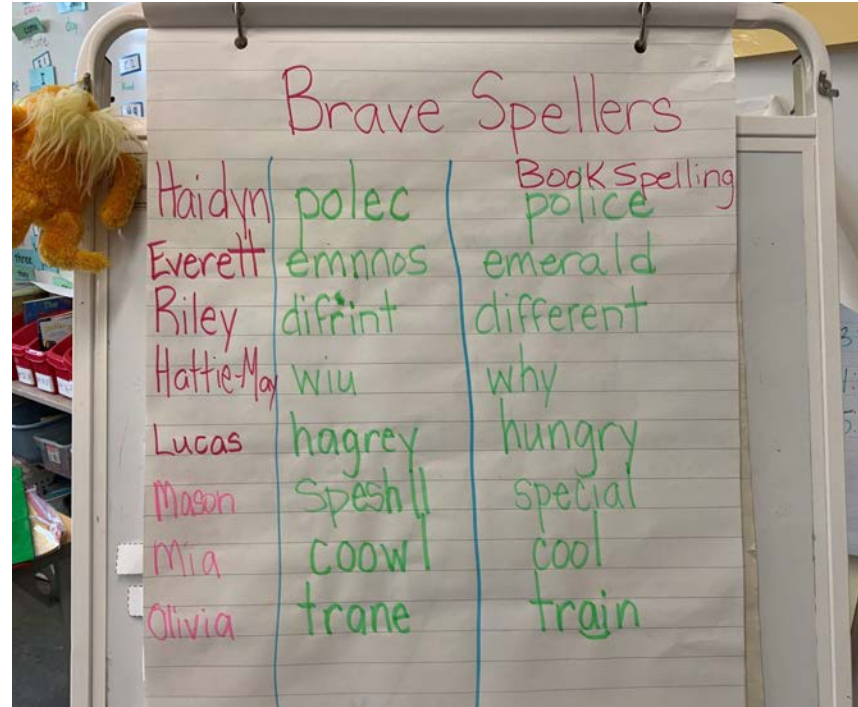 Brave Spellers
Book Spelling
Haidyn polec police
Everett emnnos emerald
Riley difrint different
Hattie-May wiu why
Lucas hagrey hungry
Mason Speshll special
Mia coowl cool
Olivia trane train
come
day
three
they